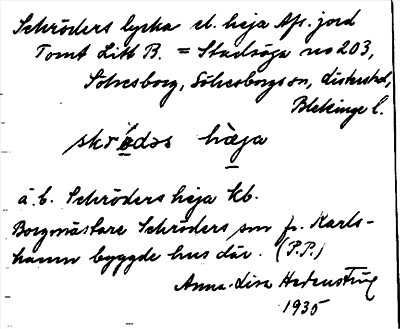 Schröders lycka el. heja Afs. jord
Tomt Litt B. = Stadsäga no 203,
Sölvesborg, Sölvesborgs sn, distrikt,
Blekinge l.
skrödəs hæja
ä. b. Schröders heja kb.
Borgmästare Schröders son fr. Karls-
hamn byggde hus där. (P.P.)
Anna-Lisa Hedenström
1935